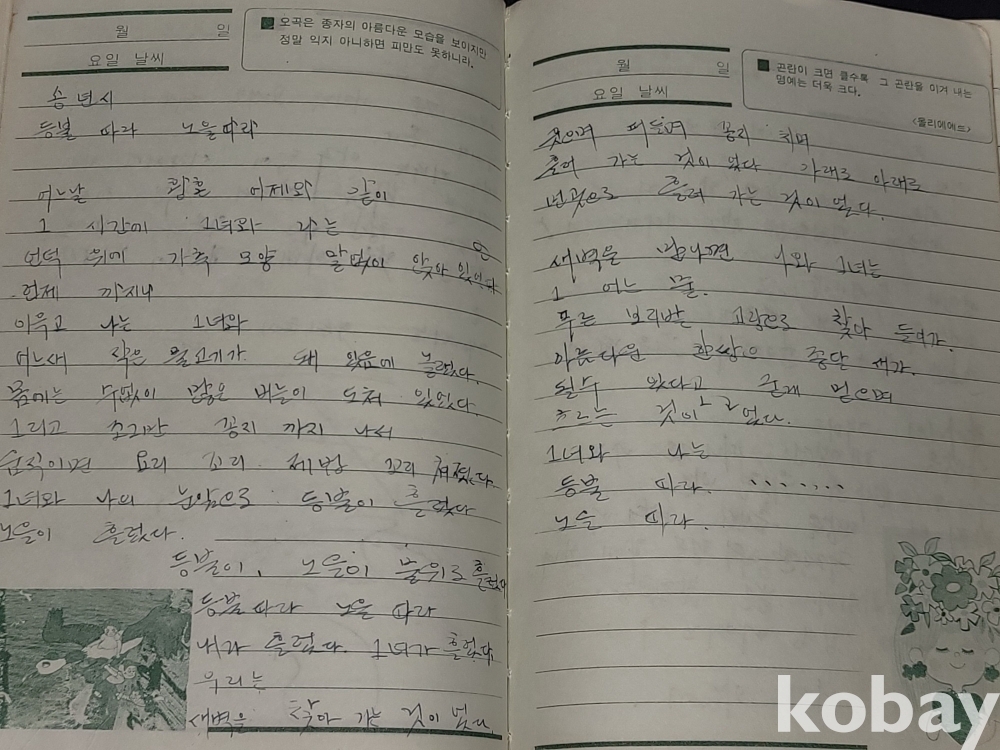 월 일
요일 날씨
오곡은 종자의 아름다운 모습을 보이지만
정말 익지 아니하면 피만도 못하니라.
송년시
등불 따라 노을따라
어느날 황혼 어제와 같이
그 시간에 그녀와 나는
언덕 위에 가축 모양 말없이 앉아 있었다
언제 까지나
이윽고 나는 그녀와
어느새 작은 물고기가 돼 있음에 놀랬다.
몸에는 수없이 많은 비늘이 도처 있었다.
그리고 조그만 꽁지 까지 나서
움직이면 요리 꼬리 제법 꼬리 쳐졌다.
그녀와 나의 눈앞으로 등불이 흘렀다
노을이 흘렀다.
등불이, 노을이 물위로 흘렀다
등불따라 노을 따라
내가 흘렀다. 그녀가 흘렀다.
우리는
새벽을 찾아 가는 것이 었다.
월 일
요일 날씨
곤란이 크면 클수록 그 곤란을 이겨 내는
명예는 더욱 크다.
<몰리에에르>
웃으며 떠들며 꽁지 치며
흘러 가는 것이 었다 아래로 아래로
흘러 가는 것이 었다.
새벽을 만나면 나와 그녀는
그 어느 물.
푸른 보리밭 고랑으로 찾아 들어가.
아름다운 한쌍의 종달 새가.
될수 있다고 굳게 믿으며
흐르는 것이 었다.
그녀와 나는
등불 따라. .......
노을 따라.
kobay